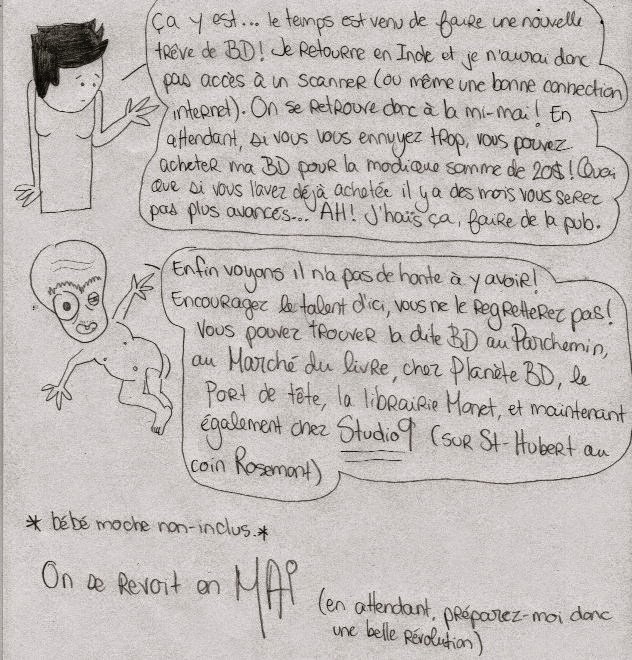 Ça y est... le temps est venu de faire une nouvelle
trêve de BD! Je retourne en Inde et je n'aurai donc
pas accès à un scanner (ou même une bonne connection
internet). On se retrouve donc à la mi-mai! En
attendant, si vous vous ennuyez trop, vous pouvez
acheter ma BD pour la modique somme de 20$! Quoi
que si vous l'avez déjà achetée il y a des mois vous serez
pas plus avancés... AH! J'haïs ça, faire de la pub.
Enfin voyons il n'a pas de honte à y avoir!
Encouragez le talent d'ici, vous ne le regretterez pas!
Vous pouvez trouver la dite BD au Parchemin,
au Marché du livre, chez Planète BD, le
Port de tête, la librairie Monet, et maintenant
également chez Studio9 (sur St-Hubert au
coin Rosemont)
* bébé moche non-inclus.*
On se revoit en MAI
(en attendant, préparez-moi donc
une belle révolution)